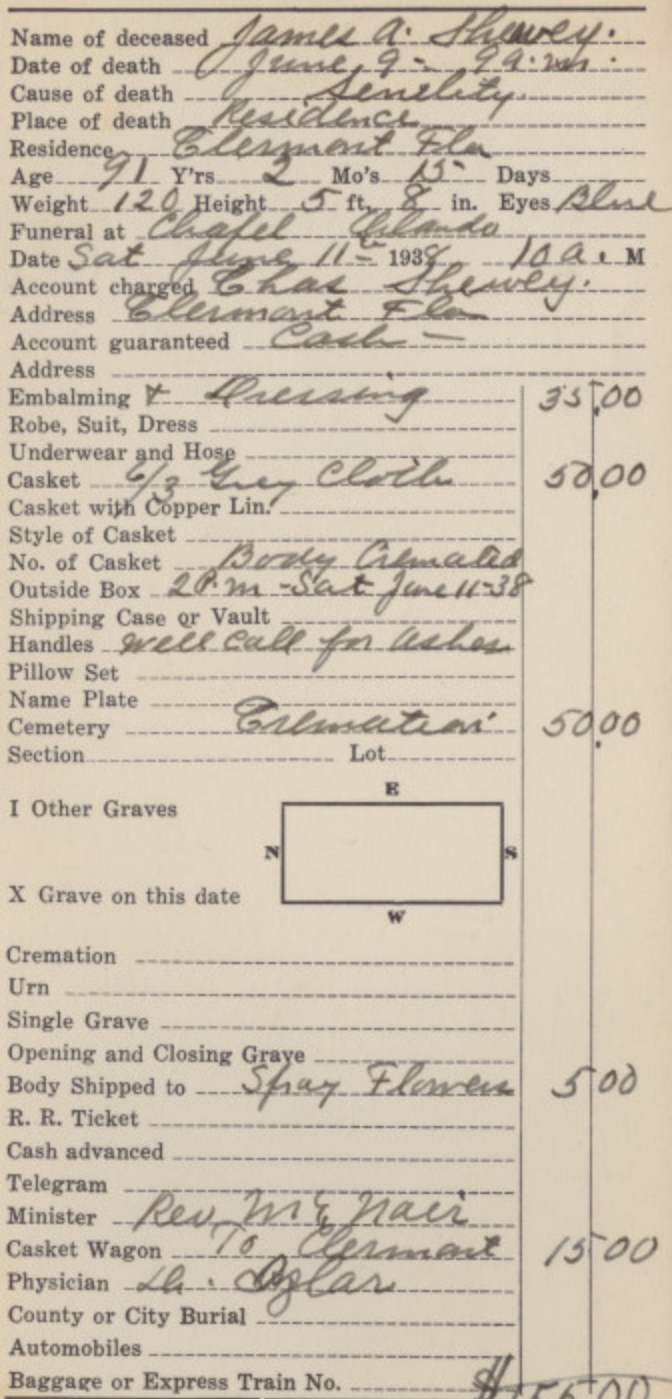 Name of deceased James A. Shewey.
Date of death June 9 - 9 a.m.
Cause of death Senelity.
Place of death Residence
Residence Clermont Fla
Age 91 Y'rs 2 Mo's 15 Days
Weight 120 Height 5 ft. 8 in. Eyes Blue
Funeral at Chapel Orlando
Date Sat June 11th 1938 10 a. M
Account charged Chas Shewey.
Address Clermont Fla
Account guaranteed Cash -
Address
Embalming & Dressing 35.00
Robe, Suit, Dress
Underwear and Hose
Casket 6/3 Grey Cloth 50.00
Casket with Copper Lin.
Style of Casket
No. of Casket Body Cremated
Outside Box 2 P.m - Sat June 11-38
Shipping Case or Vault
Handles will call for ashes
Pillow Set
Name Plate
Cemetery Cremation 50.00
Section Lot
E
I Other Graves
N S
X Grave on this date
W
Cremation
Urn
Single Grave
Opening and Closing Grave
Body Shipped to Spray Flowers 5 00
R. R. Ticket
Cash advanced
Telegram
Minister Rev. McNair
Casket Wagon To Clermont 15 00
Physician Dr.
County or City Burial
Automobiles
Baggage or Express Train No. $